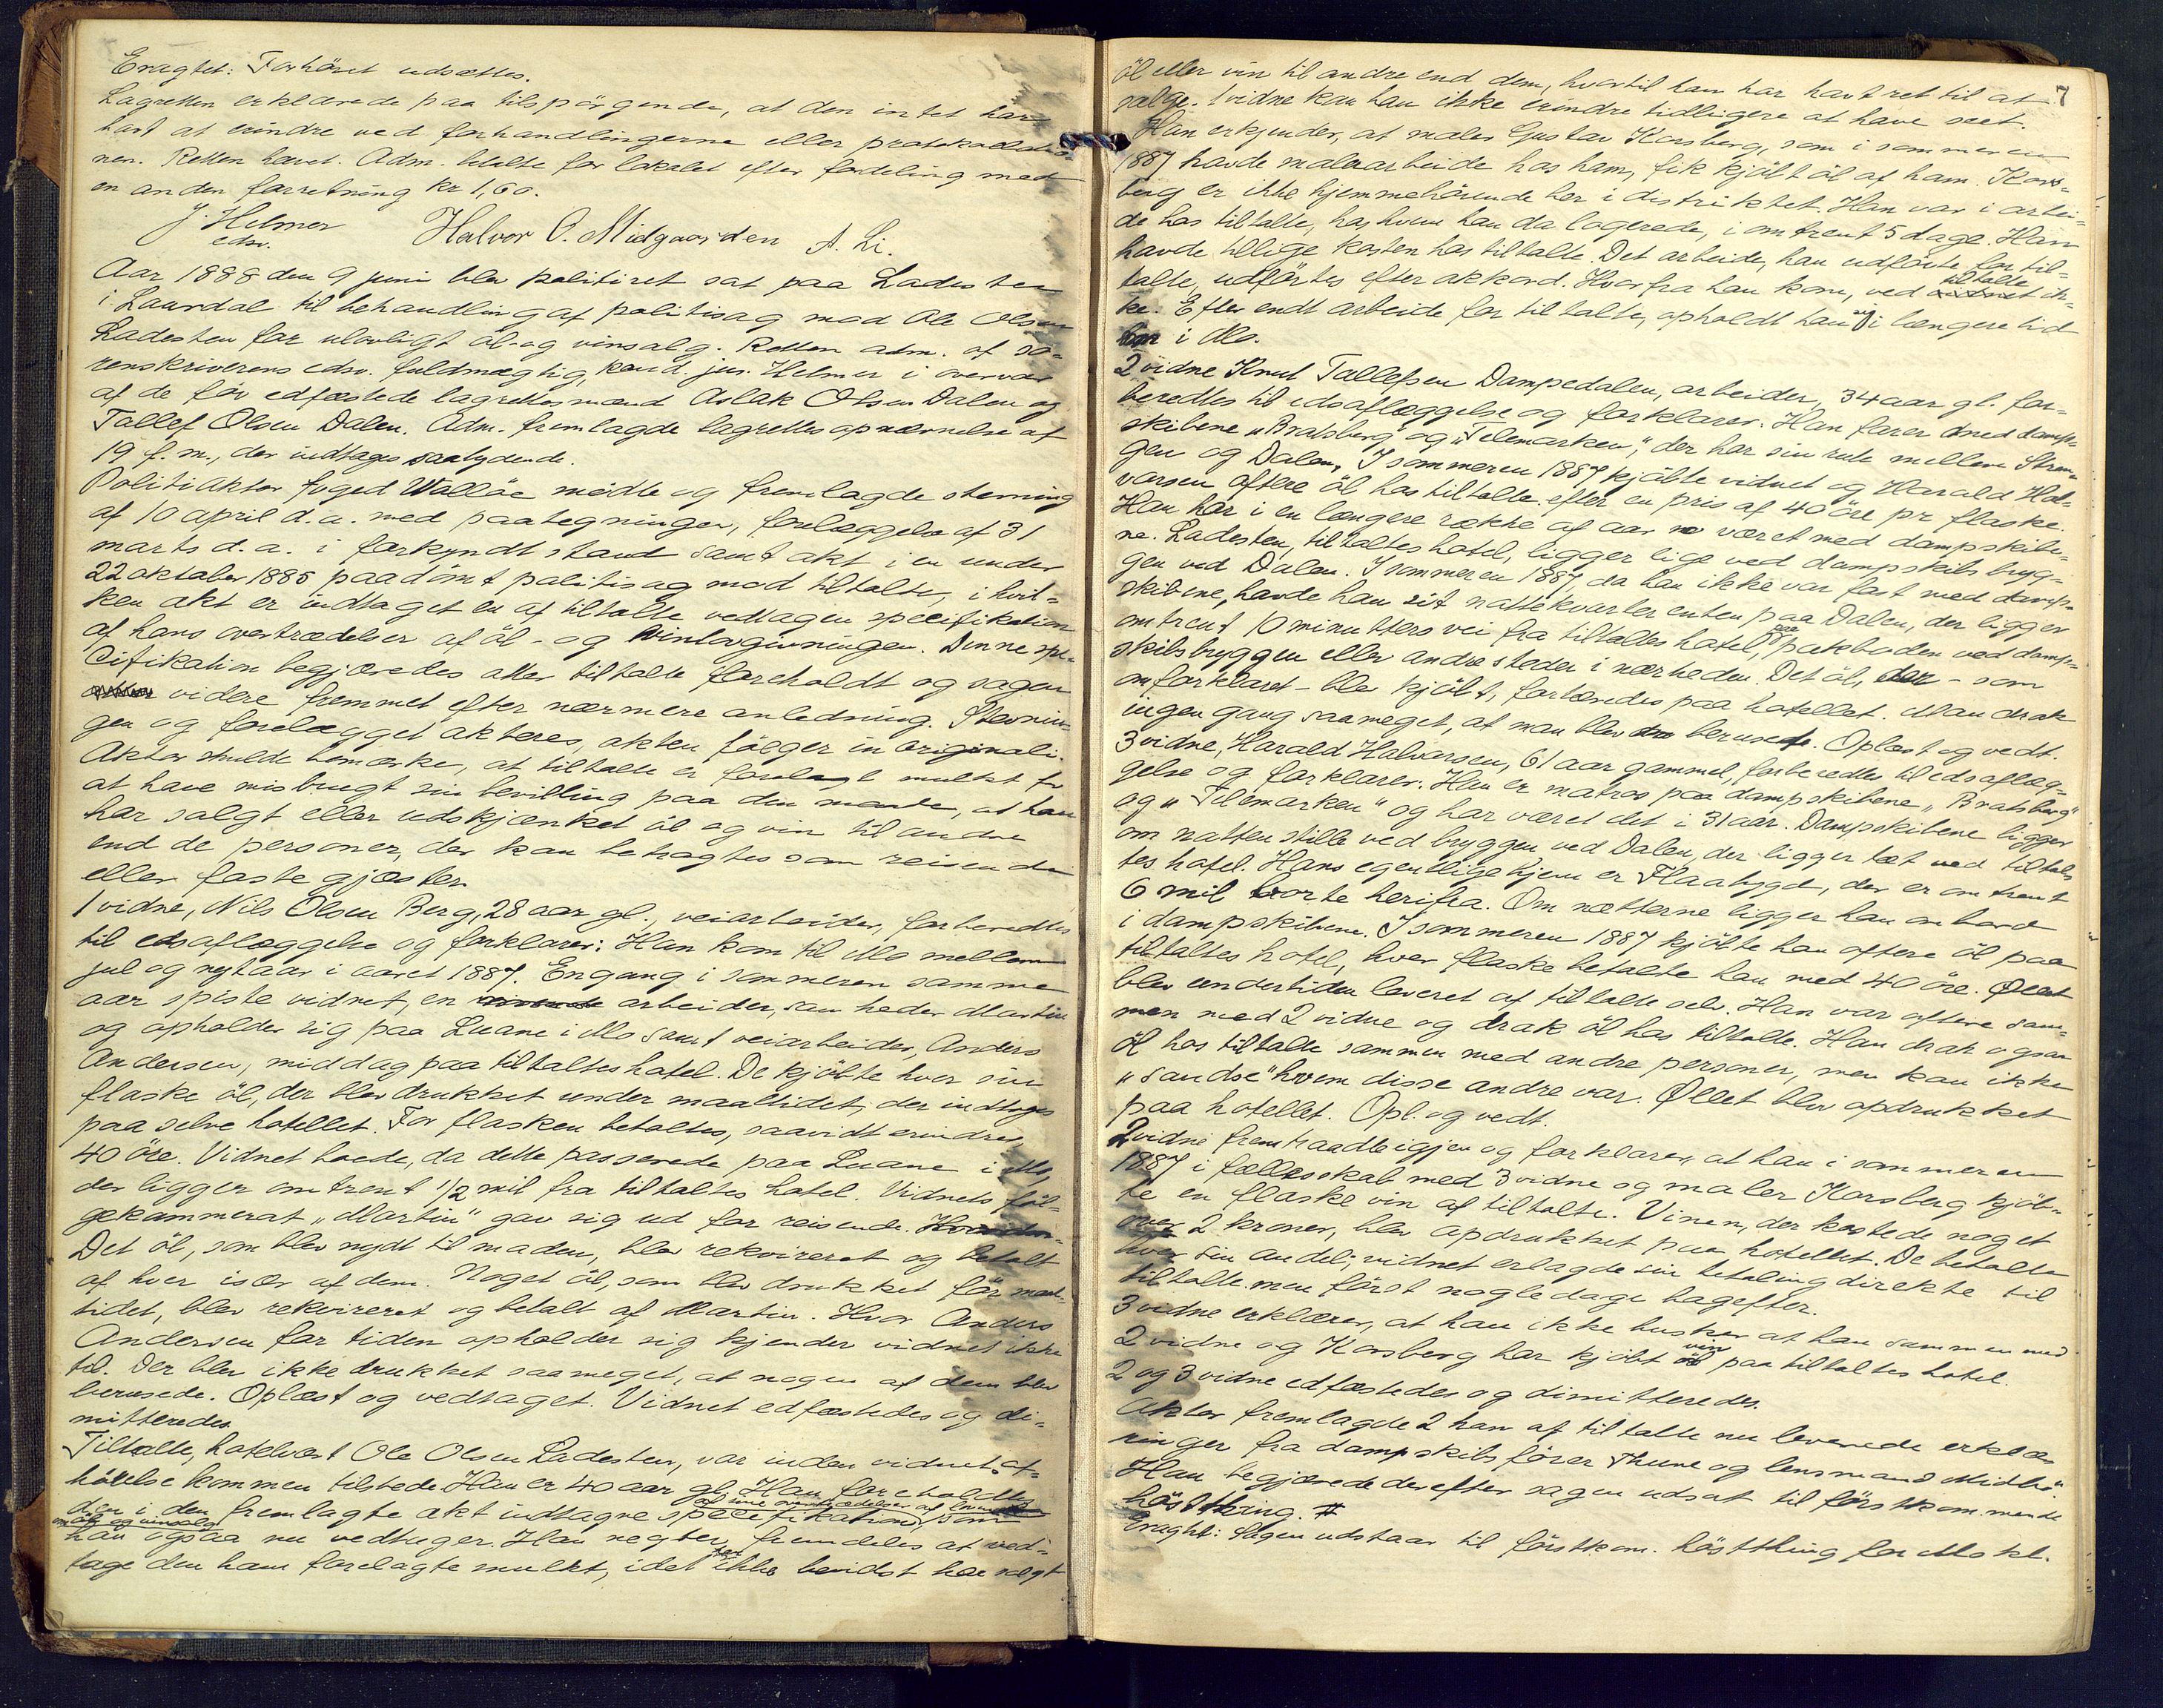 Eragtet: Forhöret udsættes.
Lagretten erklærede paa tilspörgende, at den intet har
havt at erindre ved forhandlingerne eller protokollatio-
nen. Retten hævet. Adm. betalte for lokalet efter fordeling med
en anden forretning kr 1,60.
J. Helmer
edsv.
Halvor O. Midgaarden A. Li.
Aar 1888 den 9 juni blev politiret sat paa Ladesten
i Laurdal til behandling af politisag mod Ole Olsen
Ladesten for ulovligt öl- og vinsalg. Retten adm. af so-
renskriverens edsv. fuldmægtig, kand. jur. Helmer i overvær
af de för edfæstede lagrettesmænd Aslak Olsen Dalen og
Tallef Olsen Dalen. Adm. fremlagde lagrettesopnævnelse af
19 f. m., der indtages saalydende.
Politiaktor foged Walløe mödte og fremlagde stevning
af 10 april d. a. med paategninger, forelæggelse af 31
marts d. a. i forkyndt stand samt akt i en under
22 oktober 1885 paadömt politisag mod tiltalte, i hvil-
ken akt er indtaget en af tiltalte vedtagen specifikation
af hans overtrædelser af öl- og vinlovgivningen. Denne spe-
cifikation begjæredes atter tiltalte foreholdt og sagen
videre fremmet efter nærmere anledning. Stevnin-
gen og forelægget akteres, akten fölger in originali.
Aktor skulde bemærke, at tiltalte er forelagt mulkt for
at have misbrugt sin bevilling paa den maade, at han
har solgt eller udskjænket öl og vin til andre
end de personer, der kan betragtes som reisende
eller faste gjæster.
1 vidne, Nils Olsen Berg, 28 aar gl., veiarbeider, forberedtes
til edsaflæggelse og forklarer: Han kom til Mo mellem
jul og nytaar i aaret 1887. Engang i sommeren samme
aar spiste vidnet, en arbeider, som heder Martin
og opholder sig paa Luane i Mo samt veiarbeider, Anders
Andersen, middag paa tiltaltes hotel. De kjöbte hver sin
flaske öl, der blev drukket under maaltidet, der indtoges
paa selve hotellet. For flasken betaltes, saavidt erindres,
40 öre. Vidnet boede, da dette passerede paa Luane i Mo,
der ligger omtrent 1/2 mil fra tiltaltes hotel. Vidnets föl-
gekammerat „Martin" gav sig ud for reisende.
Det öl, som blev nydt til maden, blev rekvireret og betalt
af hver især af dem. Noget öl, som blev drukket för maal-
tidet, blev rekvireret og betalt af Martin. Hvor Anders
Andersen for tiden opholder sig kjender vidnet ikke
til. Der blev ikke drukket saameget, at nogen af dem blev
berusede. Oplæst og vedtaget. Vidnet edfæstedes og di-
mitteredes.
Tiltalte, hotelvært Ole Olsen Ladesten, var inden vidnets af-
hörelse kommen tilstede. Han er 40 aar gl. Han foreholdtes
den i den fremlagte akt indtagne specifikation af sine overtrædelser af loven
om öl og vinsalg, som
han ogsaa nu vedtager. Han negter fremdeles at ved-
tage den ham forelagte mulkt, idet han ikke bevidst har solgt
7
öl eller vin til andre end dem, hvortil han har havt ret til at
sælge. 1 vidne kan han ikke erindre tidligere at have seet.
Han erkjender, at maler Gustav Korsberg, som i sommeren
1887 havde malerarbeide hos ham, fik kjöbt öl af ham. Kors-
berg er ikke hjemmehörende her i distriktet. Han var i arbei-
de hos tiltalte, hos hvem han da logerede, i omtrent 5 dage. Han
havde tillige kosten hos tiltalte. Det arbeide, han udförte for til-
talte, udförtes efter akkord. Hvorfra han kom, ved tiltalte ik-
ke. Efter endt arbeide for tiltalte, opholdt han sig i længere tid
i Mo.
2 vidne Knut Tallefsen Dampedalen, arbeider, 34 aar gl. for-
beredtes til edsaflæggelse og forklarer: Han farer med damp-
skibene „Bratsberg" og „Telemarken", der har sin rute mellem Stren-
gen og Dalen. I sommeren 1887 kjöbte vidnet og Harald Hal-
varsen oftere öl hos tiltalte efter en pris af 40 öre pr flaske.
Han har i en længere række af aar været med dampskibe-
ne. Ladesten, tiltaltes hotel, ligger lige ved dampskibsbryg-
gen ved Dalen. I sommeren 1887, da han ikke var fast med damp-
skibene, havde han sit nattekvarter enten paa Dalen, der ligger
omtrent 10 minutters vei fra tiltaltes hotel, paa pakboden ved damp-
skibsbryggen eller andre steder i nærheden. Det öl, – som
omforklaret – blev kjöbt, fortæredes paa hotellet. Man drak
ingen gang saameget, at man blev beruset. Oplæst og vedt.
3 vidne, Harald Halvarsen, 61 aar gammel, forberedtes til edsaflæg-
gelse og forklarer: Han er matros paa dampskibene „Bratsberg"
og „Telemarken" og har været det i 31 aar. Dampskibene ligger
om natten stille ved bryggen ved Dalen, der ligger tæt ved tiltal-
tes hotel. Hans egentlige hjem er Flaabygd, der er omtrent
6 mil borte herifra. Om nætterne ligger han ombord
i dampskibene. I sommeren 1887 kjöbte han oftere öl paa
tiltaltes hotel, hver flaske betalte han med 40 öre. Øllet
blev undertiden leveret af tiltalte selv. Han var oftere sam-
men med 2 vidne og drak öl hos tiltalte. Han drak ogsaa
öl hos tiltalte sammen med andre personer, men kan ikke
„sandse" hvem disse andre var. Øllet blev opdrukket
paa hotellet. Opl. og vedt.
2 vidne fremtraadte igjen og forklarer, at han i sommeren
1887 i fællesskab med 3 vidne og maler Korsberg kjöb-
te en flaske vin af tiltalte. Vinen, der kostede noget
over 2 kroner, blev opdrukket paa hotellet. De betalte
hver sin andel; vidnet erlagde sin betaling direkte til
tiltalte men först nogle dage bagefter.
3 vidne erklærer, at han ikke husker at han sammen med
2 vidne og Korsberg har kjöbt vin paa tiltaltes hotel.
2 og 3 vidne edfæstedes og dimitteredes.
Aktor fremlagde 2 ham af tiltalte nu leverede erklæ-
ringer fra dampskibsförer Thune og lensmand Midbö.
Han begjærede derefter sagen udsat til förstkommende
hösttthing.
Eragtet: Sagen udstaar til förstkom. höstthing for Mo tel.